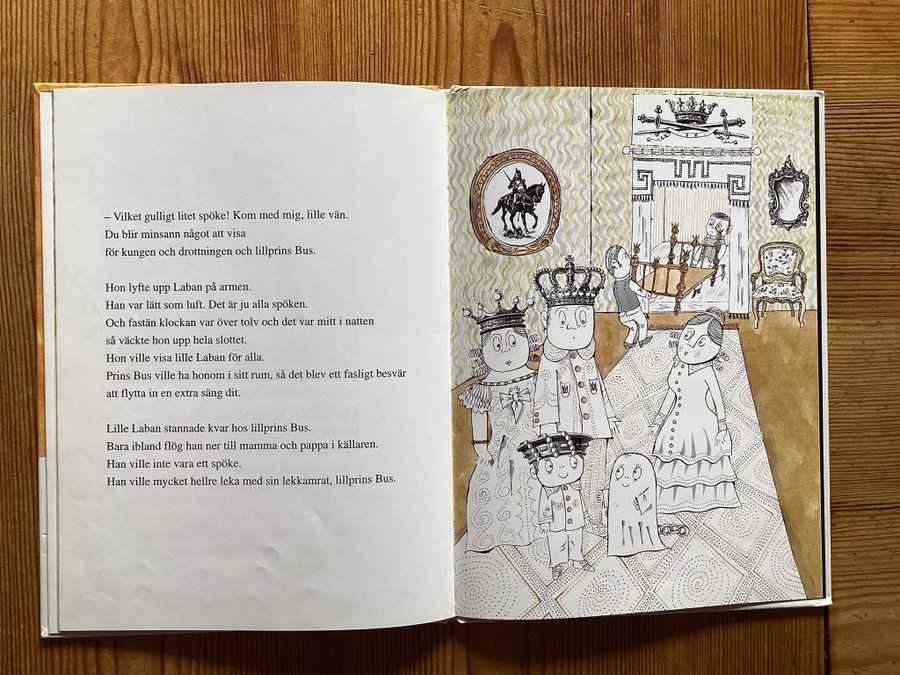 – Vilket gulligt litet spöke! Kom med mig, lille vän.
Du blir minsann något att visa
för kungen och drottningen och lillprins Bus.
Hon lyfte upp Laban på armen.
Han var lätt som luft. Det är ju alla spöken.
Och fastän klockan var över tolv och det var mitt i natten
så väckte hon upp hela slottet.
Hon ville visa lille Laban för alla.
Prins Bus ville ha honom i sitt rum, så det blev ett fasligt besvär
att flytta in en extra säng dit.
Lille Laban stannade kvar hos lillprins Bus.
Bara ibland flög han ner till mamma och pappa i källaren.
Han ville inte vara ett spöke.
Han ville mycket hellre leka med sin lekkamrat, lillprins Bus.